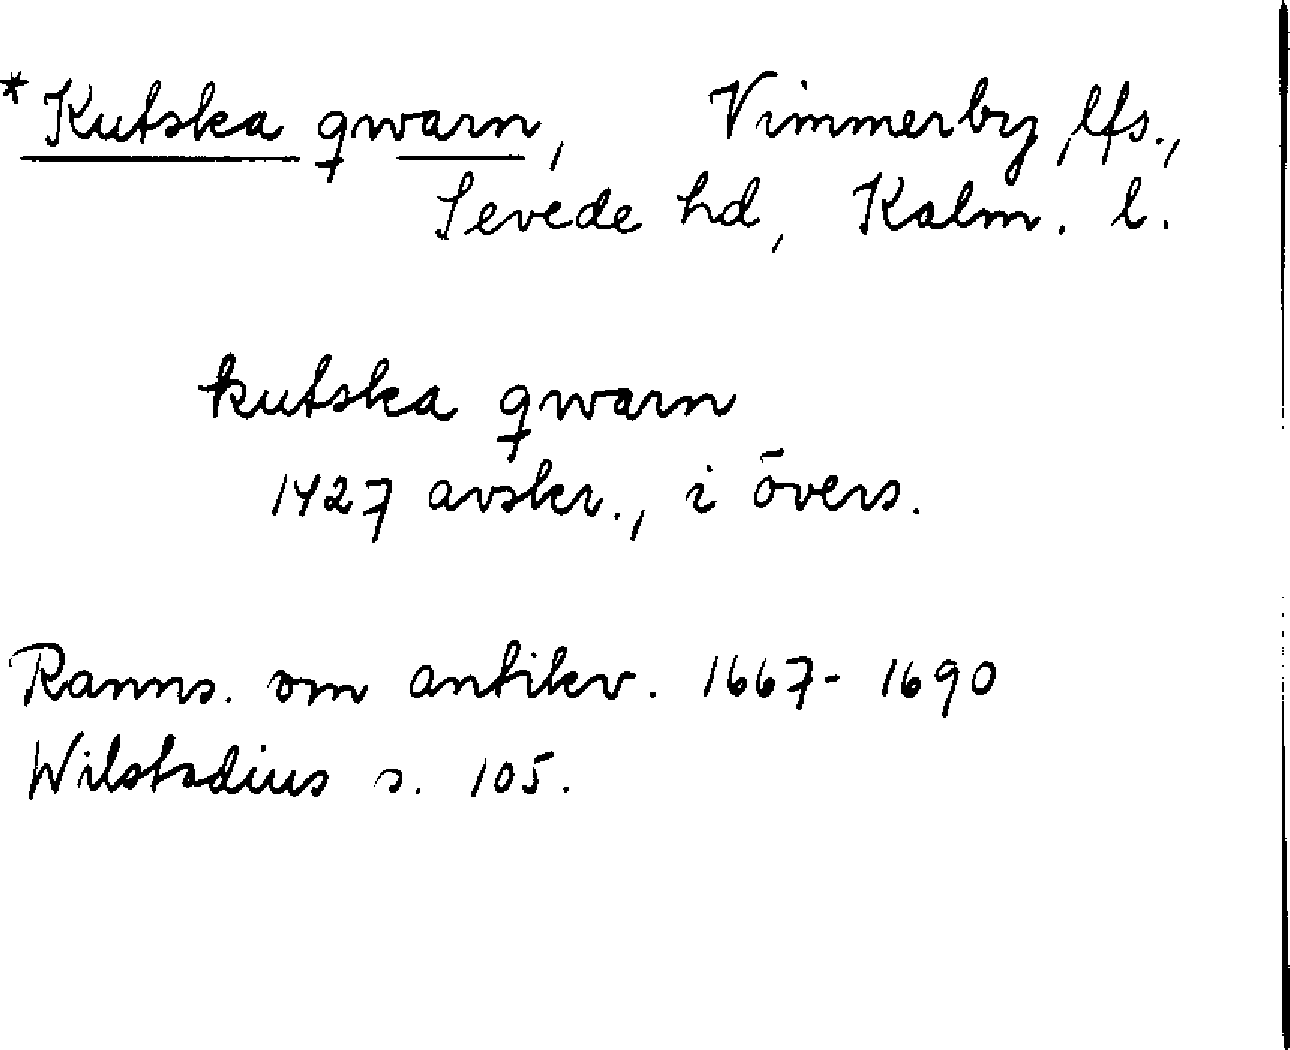 *Kutska qwarn, Vimmerby lfs.,
Sevede hd, Kalm. l.
kutska qwarn
1427 avskr., i övers.
Ranns. om antikv. 1667-1690
Wilstadius s. 105.